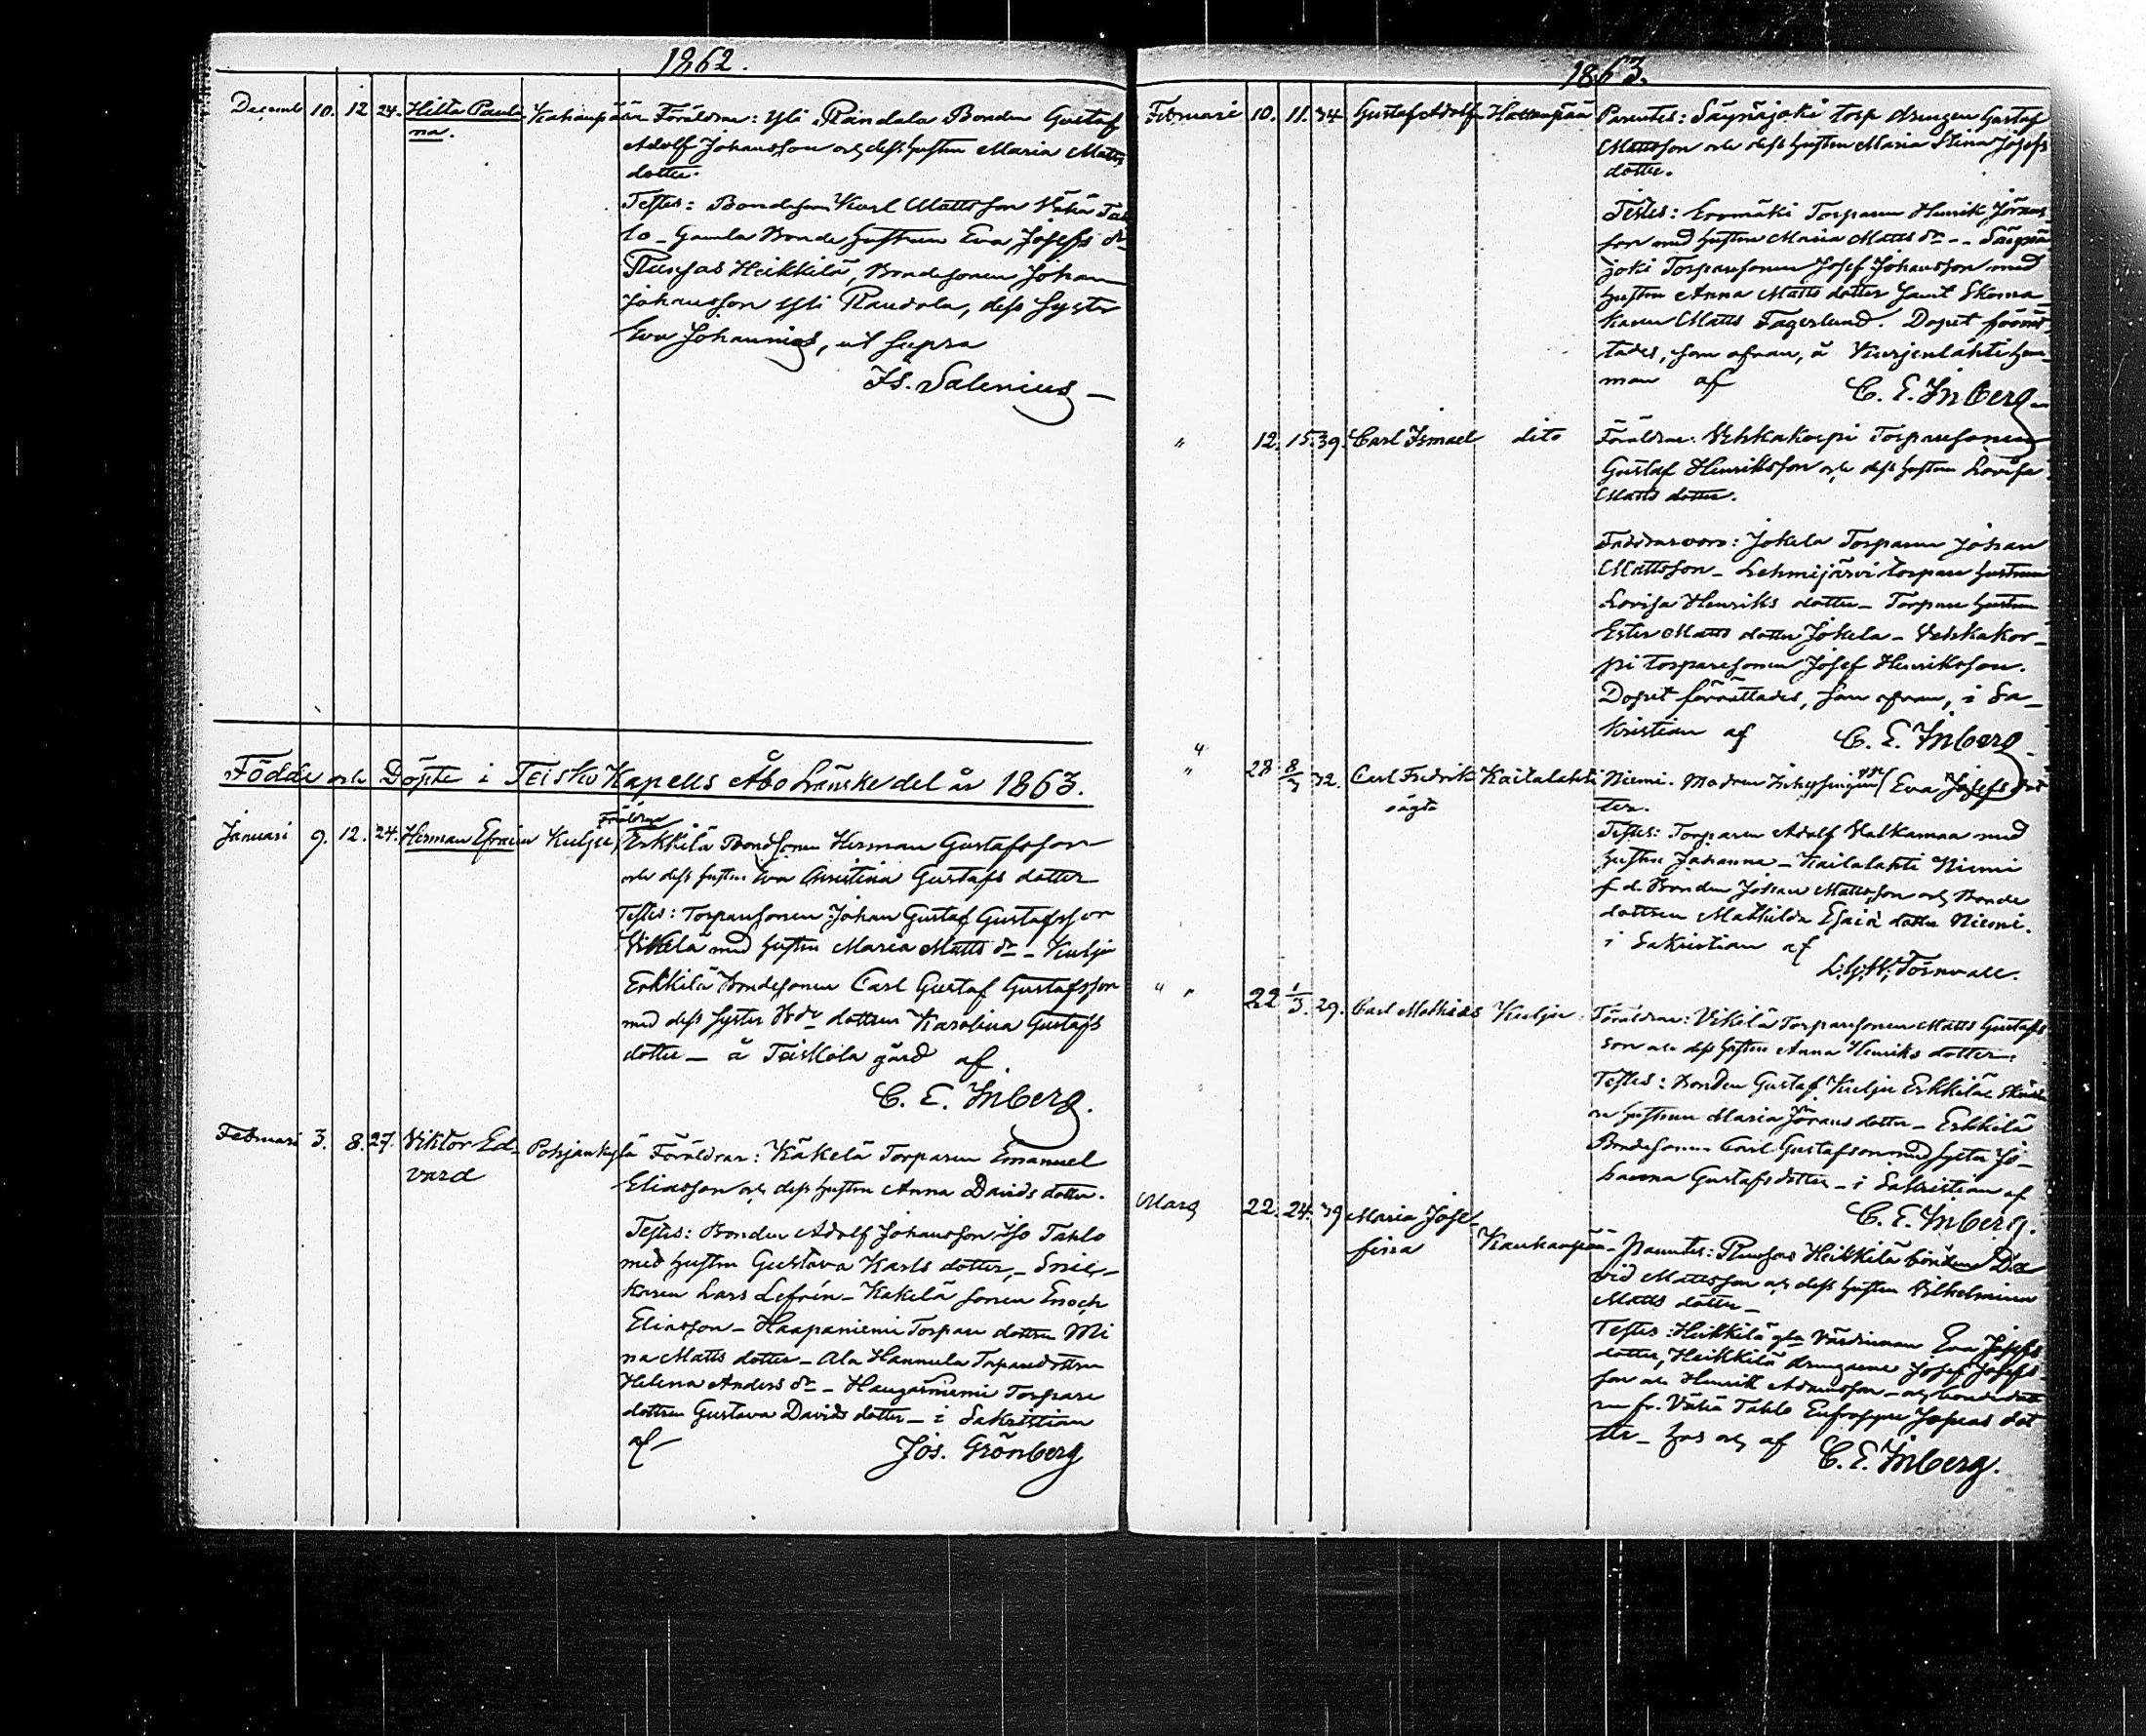 1862.
Decemb 10. 12 24. Hilta Pauli- Föräldrar: Yli Randala Bonden Gustaf
na. Adolf Johansson och dess hustru Maria Matts
dotter.
Testes: Bondesonen Karl Mattsson Vähä Tah
lo - Gamla Bonde hustrun Eva Josefs dr
Heikkilä, Bondesonen Johan
Johansson Yli Randala, dess syster
Eva, ut supra
Js. Salenius
Födde och Döpte i Teisko Kapells Åbo Länske del år 1863.
Föräldrar
Januari 9. 12. 24. Herman Efraim Kulju Erkkilä Bondsonen Herman Gustafsson
och dess hustru Eva Christina Gustafs dotter
Testes: Torparesonen Johan Gustaf Gustafsson
Vikelä med hustru Maria Matts dr - Kulju
Erkkilä Bondesonen Carl Gustaf Gustafsson
med dess syster dottren Karolina Gustafs
dotter - å Teiskola gård af
C. E. Inberg.
Februari 3. 8. 27. Viktor Ed- Pohjankylä Föräldrar: Käkelä Torparen Emanuel
vard Eliasson och dess hustru Anna Davids dotter.
Testes: Bonden Adolf Johansson Iso Tahlo
med hustru Gustava Karls dotter, - Snic-
karen Lars Lefrén - Käkelä sonen Enoch
Eliasson - Haapaniemi Torpare dottren Mi
na Matts dotter - Ala Hannula Torparedottren
Helena Anders dr - Haugasniemi Torpare
dottren Gustava Davids dotter - i Sakristian
af Jos. Grönberg
1863.
Februari 10. 11. 34 Gustaf Adolf Parentes: Säynäjoki torp drengen Gustaf
Mattsson och dess hustru Maria Stina Josefs
dotter.
Testes: Torparen Henrik
son med hustru Maria Matts dr - Säynä
joki Torparesonen Josef Johansson med
hustru Anna Matts dotter samt Skoma-
karen Matts Fagerlund. Dopet förrät-
tades, som ofvan, å Kurjenlahti hem-
man af C. E. Inberg
" 12. 15. 39. Carl Ismael dito Föräldrar: Vehkakorpi Torparesonen
Gustaf Henriksson och dess hustru Lovisa
Matts dotter.
Faddrar voro: Jokela Torparen Johan
Mattsson - Lehmijärvi torpare hustrun
Lovisa Henriks dotter - Torpare hustrun
Ester Matts dotter Jokela - Vehkakor-
pi torparesonen Josef Henriksson.
Dopet förrättades, som ofvan, i Sa-
kristian af C. E. Inberg
" 28 8/3 32. Carl Fredrik Kaitalahti Niemi. Modren Inhysespigan Eva Josefs dot
oägta ter.
Testes: Torparen Adolf Valkamaa med
hustru Johanna - Kaitalahti Niemi
f.d. Bonden Johan Mattsson och Bonde
dottren Mathilda Esaiæ dotter Niemi.
i Sakristian af
Törnvall.
" " 22 1/3. 29. Carl Mathias Kulju Föräldrar: Vikelä Torparesonen Matts Gustafs
son och dess hustru Anna Henriks dotter.
Testes: Bonden Gustaf Kulju Erkkilä
hustrun Maria Görans dotter - Erkkilä
Bondesonen Carl Gustafsson med syster Jo-
hanna Gustafs dotter - i Sakristian af
C. E. Inberg.
Mars 22. 24. 39 Maria Jose- Parentes: Heikkilä bonden Da
fina vid Mattsson och dess hustru Vilhelmina
Matts dotter -
Testes: Heikkilä gla Värdinnan Eva Josefs
dotter, Heikkilä drengarne Josef Josefs
son och Henrik Adamsson - och bondedott
ren fr. Vähä Tahlo Eufrosyne dot
ter - hos och af C. E. Inberg.